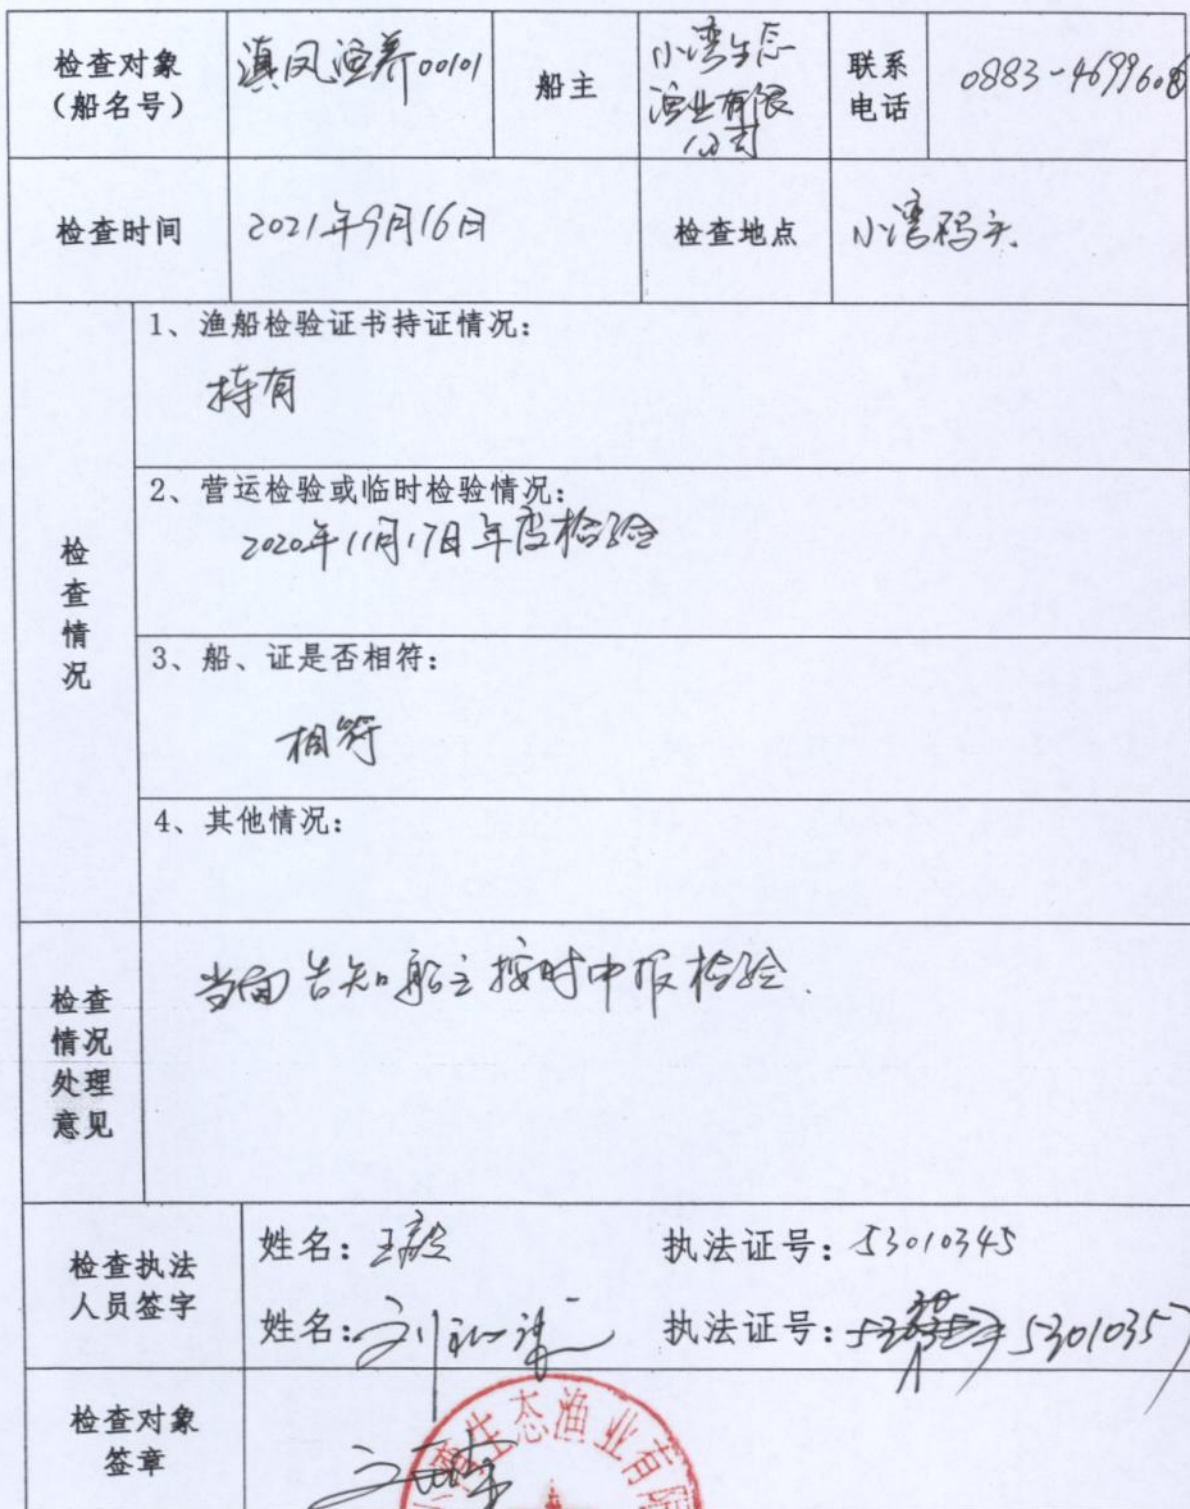 检查对象
（船名号）
滇凤渔养00101
船主
小湾生态
渔业有限
公司
联系
电话
0883-4699608
检查时间
2021年9月16日
检查地点
小湾码头.
检查情况
1、渔船检验证书持证情况：
持有
2、营运检验或临时检验情况：
2020年11月17日年度检验
3、船、证是否相符：
相符
4、其他情况：
检查
情况
处理
意见
当面告知船主按时申报检验.
检查执法
人员签字
姓名：王毅
执法证号：53010345
姓名：刘
执法证号：53010357
检查对象
签章
湾生态渔业有限